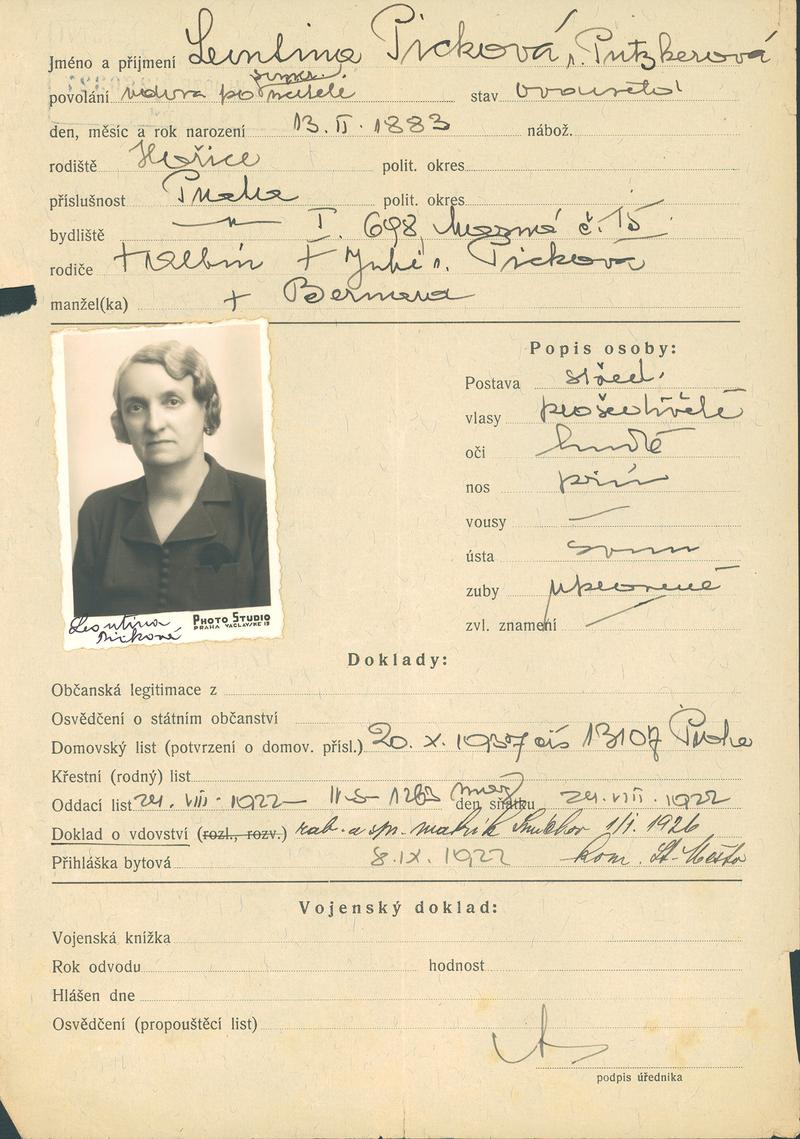 Jméno a příjmení Leontina Picková, r. Pützkerová
povolání vdova po stav ovdovělá
den, měsíc a rok narození 13. II. 1883 nábož.
rodiště Hořice polit. okres
příslušnost Praha polit. okres
bydliště —〃— I. 698, č. 15
rodiče + Albín + r. Picková
manžel(ka) + Bernard
Popis osoby:
Postava střed.
vlasy prošedivělé
oči hnědé
nos přím
vousy —
ústa
zuby
zvl. znamení
Leontina
Picková
PHOTO STUDIO
PRAHA VÁCLAVSKÉ 19
Doklady:
Občanská legitimace z
Osvědčení o státním občanství
Domovský list (potvrzení o domov. přísl.) 20. X. 1937 čís 13107 Praha
Křestní (rodný) list
Oddací list 24. VIII. 1922 — den sňatku 24. VIII. 1922
Doklad o vdovství (rozl., rozv.) matrik Smíchov 1/I. 1926
Přihláška bytová 8. IX. 1922 kom. St. Město
Vojenský doklad:
Vojenská knížka
Rok odvodu hodnost
Hlášen dne
Osvědčení (propouštěcí list)
podpis úředníka